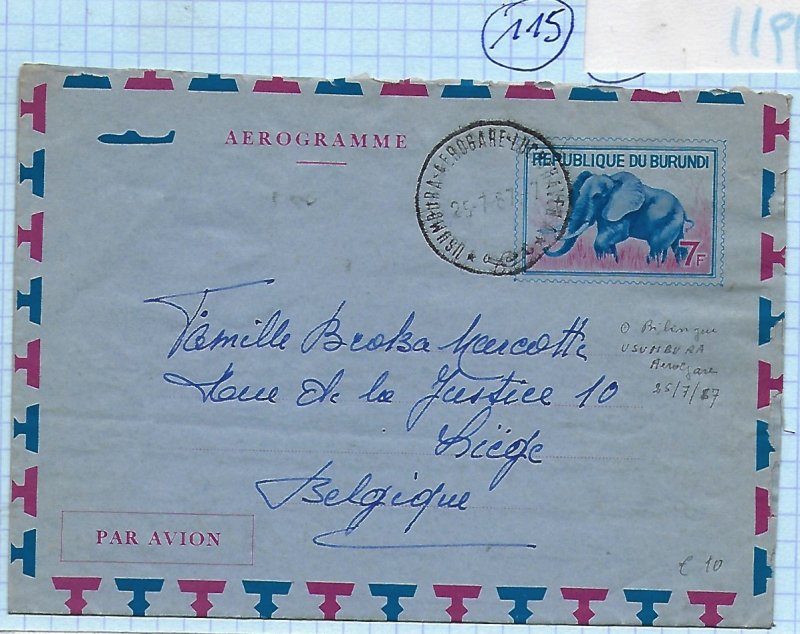 115
AEROGRAMME
REPUBLIQUE DU BURUNDI
7F
USUMBURA-AEROGARE-LUCHTHAVEN
25-7-67
Famille Broka Marcotte
Rue de la Justice 10
Liège
Belgique
O Bilingue
USUMBURA
Aerogare
25/7/67
PAR AVION
£ 10